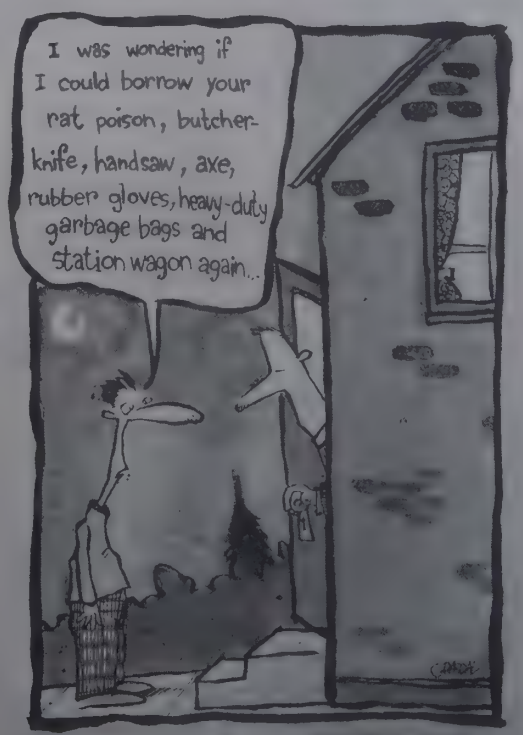 I was wondering if
I could borrow your
rat poison, butcher-
knife, handsaw, axe,
rubber gloves, heavy-duty
garbage bags and
station wagon again...